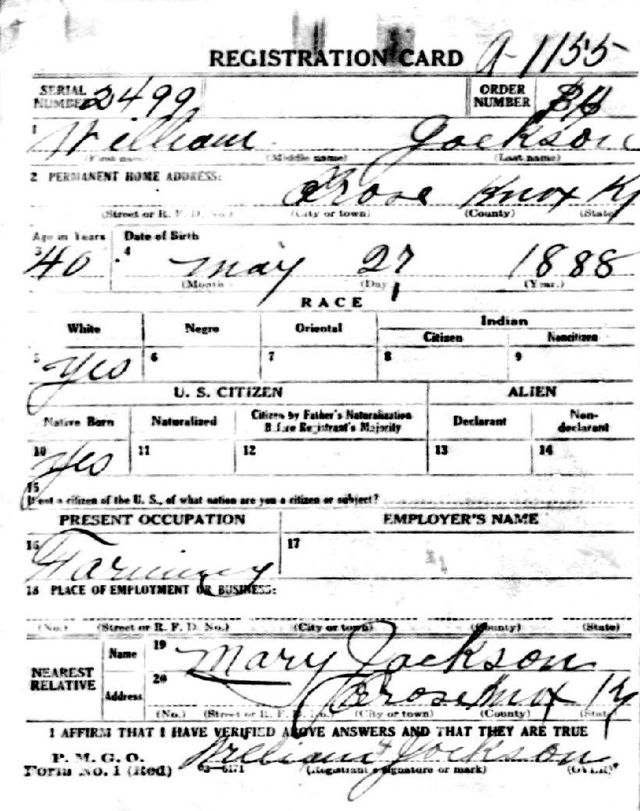 REGISTRATION CARD A-1155
SERIAL NUMBER 2499 ORDER NUMBER
1 William Jackson
(First name) (Middle name) (Last name)
2 PERMANENT HOME ADDRESS:
Crose Knox Ky
(Street or R. F. D. No.) (City or town) (County) (State)
Age in Years Date of Birth
3 40 4 May 27 1888
(Month) (Day) (Year)
RACE
White Negro Oriental Indian
Citizen Noncitizen
5 Yes 6 7 8 9
U. S. CITIZEN ALIEN
Native Born Naturalized Citizen by Father's Naturalization Before Registrant's Majority Declarant Non-declarant
10 Yes 11 12 13 14
15
If not a citizen of the U. S., of what nation are you a citizen or subject?
PRESENT OCCUPATION EMPLOYER'S NAME
16 Farming 17
18 PLACE OF EMPLOYMENT OR BUSINESS:
(No.) (Street or R. F. D. No.) (City or town) (County) (State)
NEAREST RELATIVE
Name 19 Mary Jackson
Address 20 Crose Knox Ky
(No.) (Street or R. F. D. No.) (City or town) (County) (State)
I AFFIRM THAT I HAVE VERIFIED ABOVE ANSWERS AND THAT THEY ARE TRUE
P. M. G. O.
Form No. 1 (Red) 03-6171 William Jackson
(Registrant's signature or mark) (OVER)